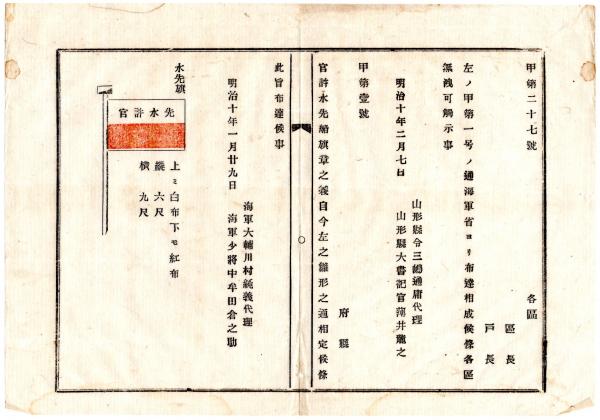 甲第二十七號
各區
區長
戸長
左ノ甲第一号ノ通海軍省ヨリ布達相成候條各區
無洩可觸示事
明治十年二月七日
山形縣令三島通庸代理
山形縣大書記官薄井龍之
甲第壹號
府縣
官許水先船旗章之義自今左之雛形之通相定候條
此旨布達候事
明治十年一月廿九日
海軍大輔川村純義代理
海軍少將中牟田倉之助
水先旗
官許水先
上ミ白布下モ紅布
縱六尺
橫九尺